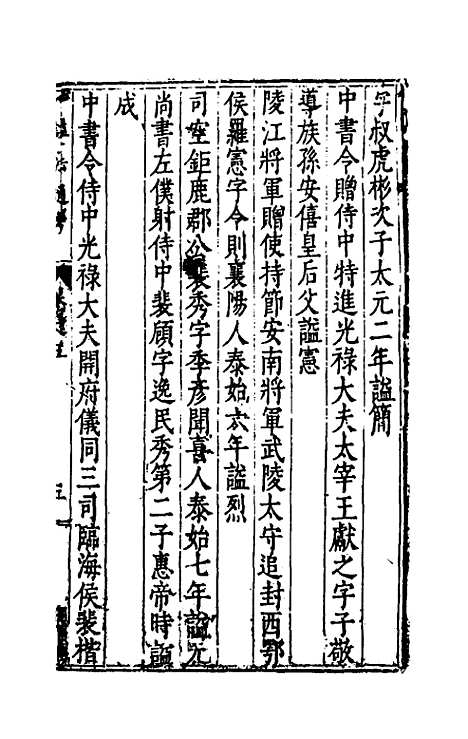 字叔虎彬次子太元二年謚簡
中書令贈侍中特進光祿大夫太宰王獻之字子敬
導族孫安僖皇后父謚憲
陵江將軍贈使持節安南將軍武陵太守追封西鄂
侯羅憲字令則襄陽人泰始六年謚烈
司空鉅鹿郡公裴秀字季彥聞喜人泰始七年謚元
尚書左僕射侍中裴頠字逸民秀第二子惠帝時謚
成
中書令侍中光祿大夫開府儀同三司臨海侯裴楷
謚法通考